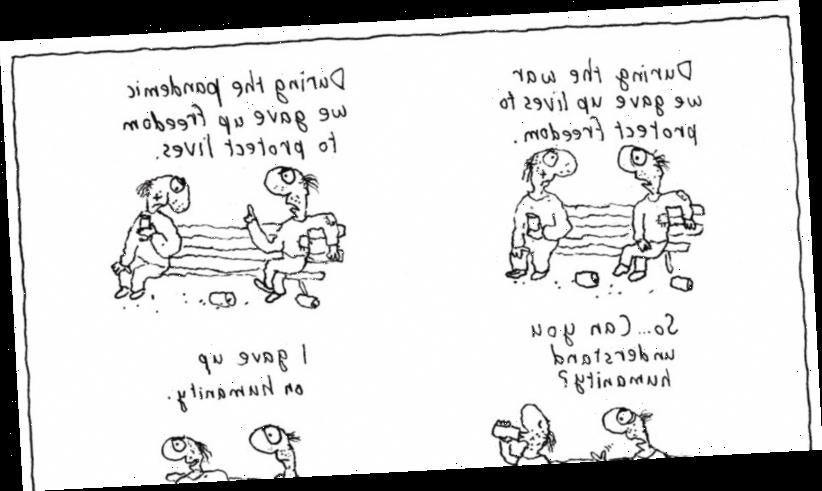 During the war
we gave up lives to
protect freedom.
During the pandemic
we gave up freedom
to protect lives.
So...Can you
understand
humanity?
I gave up
on humanity.